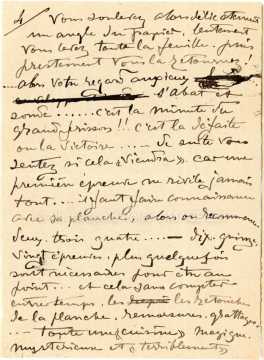 4/ Vous soulevez alors délicatement
un angle du papier, lentement
vous levez toute la feuille, puis
prestement vous la retournez!
...alors votre regard anxieux
s'abat et
sonde ...... c'est la minute du
grand frisson!! c'est la défaite
ou la victoire ..... De suite vous
sentez si cela "Viendra" car une
première épreuve ne révèle jamais
tout... il faut faire connaissance
avec sa planche, alors on recommence
deux, trois quatre ..... dix, quinze
vingt épreuves, plus quelquefois
sont nécessaires pour être au
point... et cela sans compter
entre temps, les les retouches
de la planche, remorsures, grattages..
..... toute une "cuisine" magique,
mystérieuse et terriblement